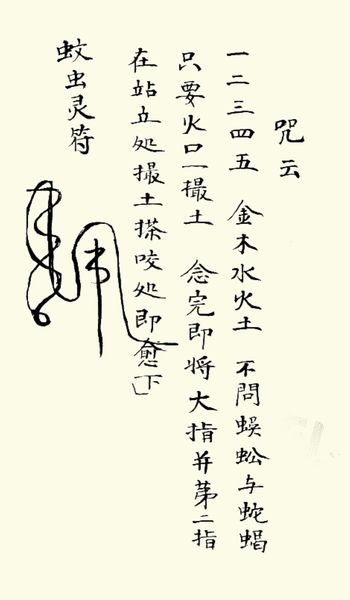 咒云
一二三四五 金木水火土 不問蜈蚣与蛇蝎
只要火口一撮土 念完即将大指并第二指
在站立处撮土搽咬处即愈下
蚊虫灵符